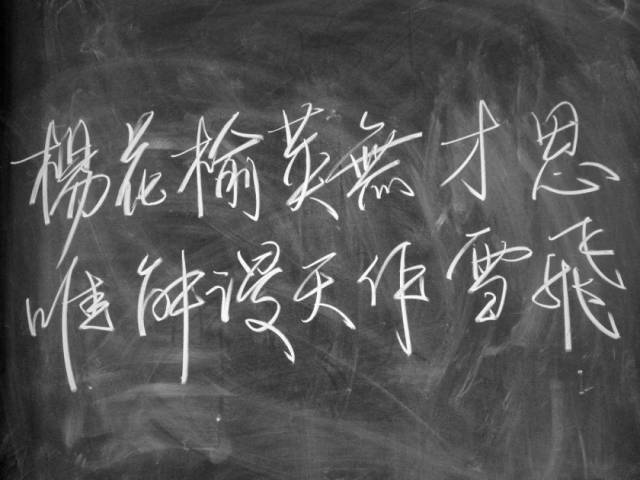 楊花榆莢無才思
唯解漫天作雪飛